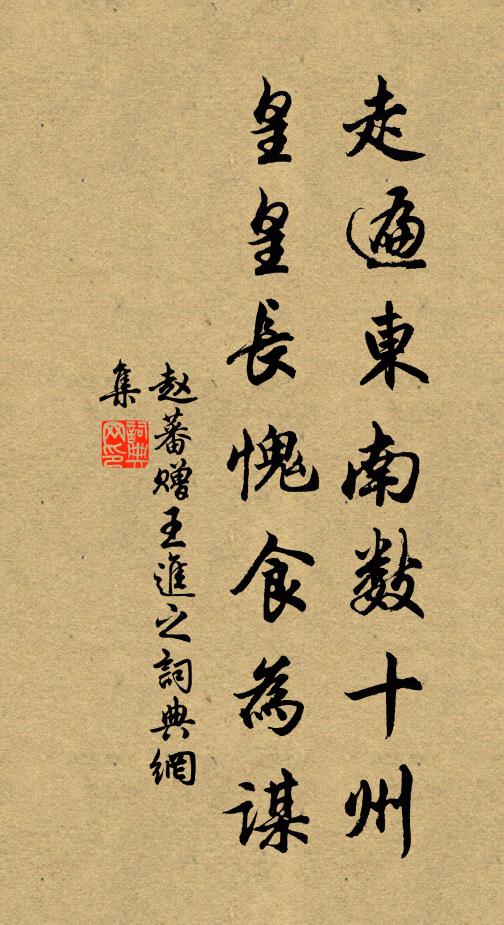 走遍東南數十州
皇皇長愧食為謀
赵蕃贈王進之詞典網
集
詞典網印